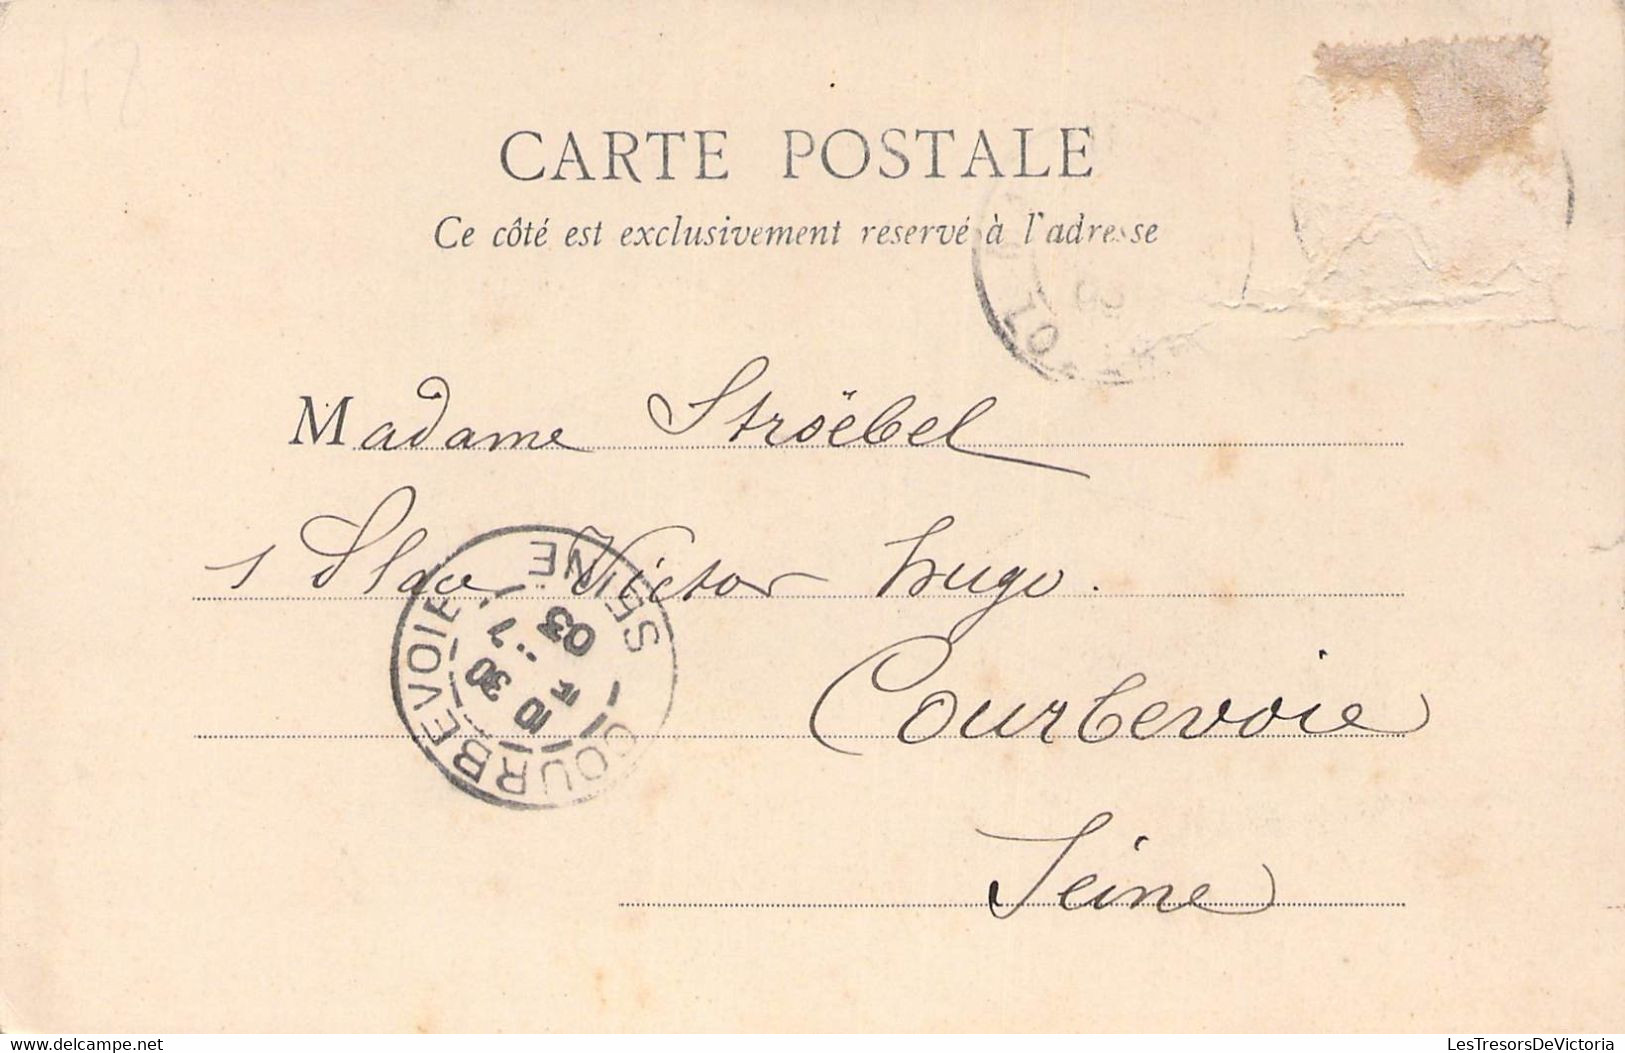 CARTE POSTALE
Ce côté est exclusivement réservé à l'adresse
Madame Ströebel
1 Place Victor Hugo.
Courbevoie
Seine
COURBEVOIE SEINE
10 30
03
LesTresorsDeVictoria